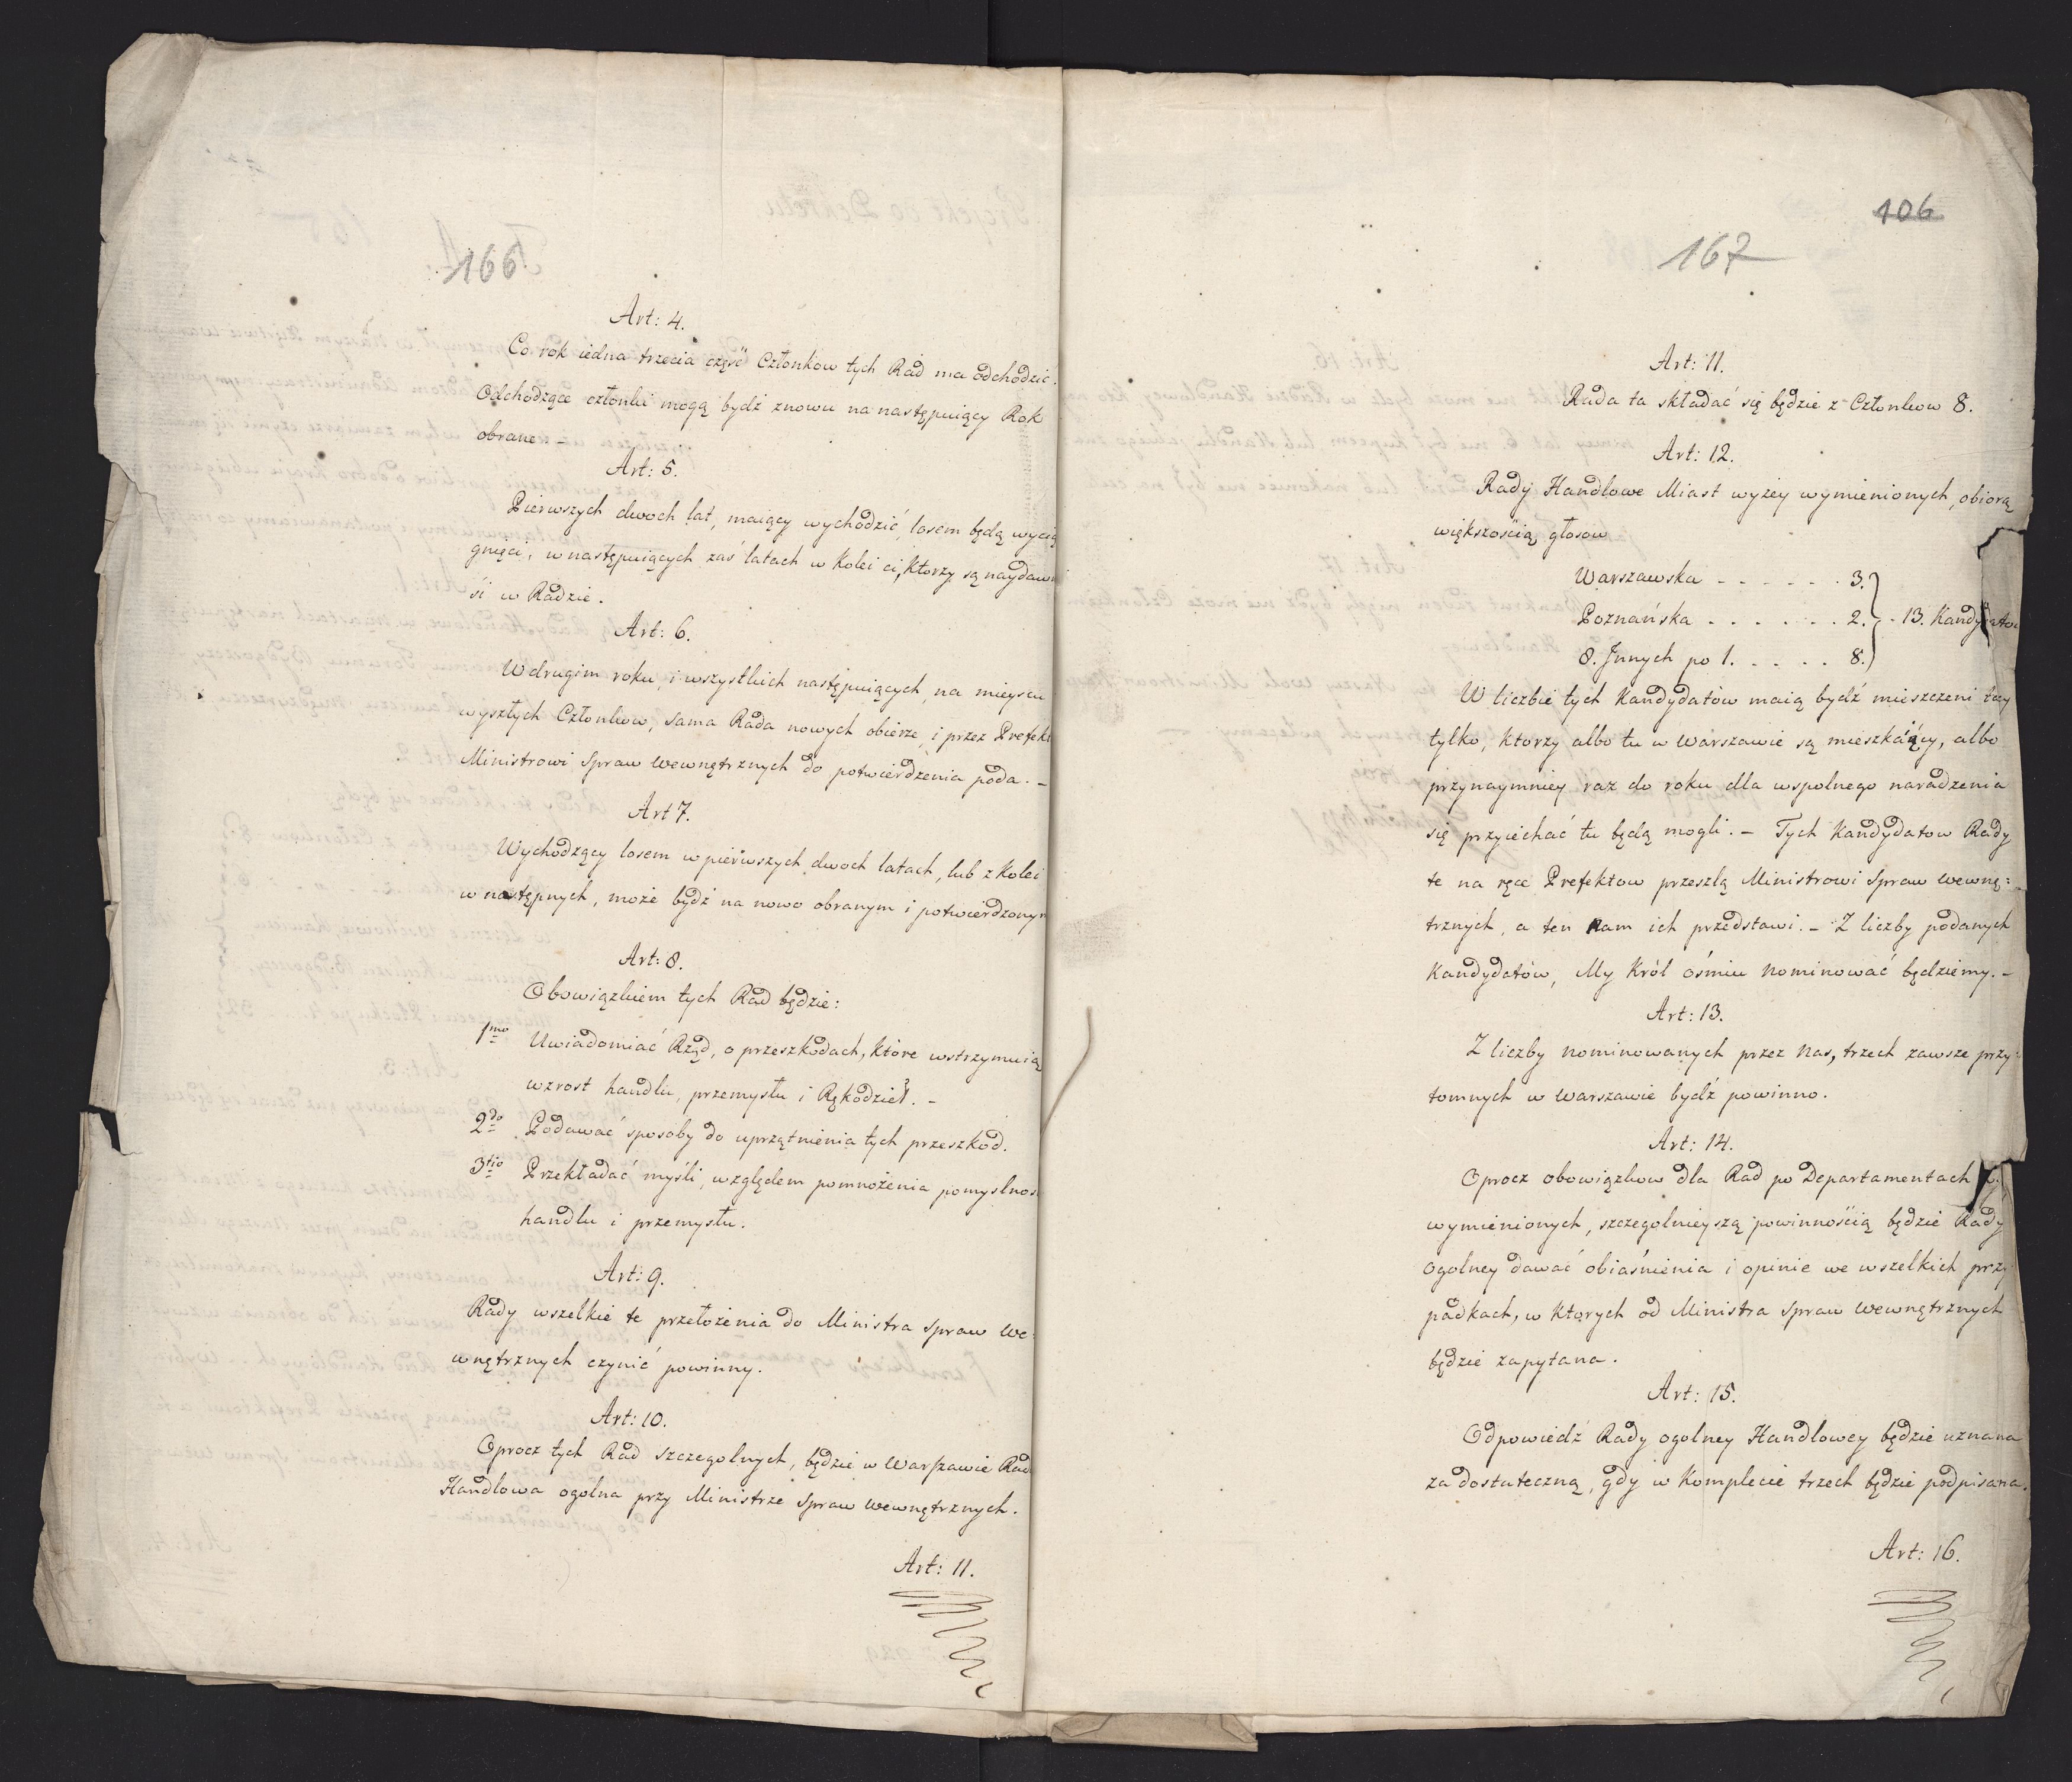 166.
Art: 4.
Co rok iedna trzecia część Członkow tych Rad ma odchodzić.
Odchodzące członki mogą bydź znowu na następuiący Rok
obrane –
Art: 5.
Pierwszych dwoch lat, maiący wychodzić, losem będą wycią
gnięci, w następuiących zaś latach w Kolei ci, Ktorzy są naydaw
si w Radzie.
Art: 6.
W drugim roku, i wszystkich następuiących, na mieyscu
wyszłych Członkow, sama Rada nowych obierze, i przez Prefekt
Ministrowi Spraw Wewnętrznych do potwierdzenia poda. –
Art 7.
Wychodzący losem w pierwszych dwoch latach, lub z Kolei
w następnych, może bydź na nowo obranym i potwierdzonym
Art: 8.
Obowiązkiem tych Rad będzie:
1mo Uwiadomiać Rząd, o przeszkodach, Które wstrzymuią
wzrost handlu, przemysłu i Rękodzieł. –
2do Podawać sposoby do uprzątnienia tych przeszkod.
3tio Przekładać myśli, względem pomnożenia pomyslnos
handlu i przemysłu.
Art: 9.
Rady wszelkie te przełożenia do Ministra Spraw We:
wnętrznych czynić powinny.
Art: 10.
Oprocz tych Rad szczegolnych, będzie w Warszawie Rad
Handlowa ogolna przy Ministrze Spraw Wewnętrznych.
Art: 11.
106
167
Art: 11.
Rada ta składać się będzie z Członkow 8.
Art: 12.
Rady Handlowe Miast wyżey wymienionych, obiorą
większością głosow
Warszawska - - - - - - 3.
Poznańska . . . . . . . 2. - 13. Kandydatow
8. Jnnych po 1. . . . . 8.
W liczbie tych Kandydatów maią bydź mieszczeni ci
tylko, Ktorzy albo tu w Warszawie są mieszkaiący, albo
przynaymniey raz do roku dla wspolnego naradzenia
się przyiechać tu będą mogli. – Tych Kandydatow Rady
te na ręce Prefektow przeszlą Ministrowi Spraw Wewnę:
trznych, a ten Nam ich przedstawi. – Z liczby podanych
Kandydatów, My Król ośmiu nominować będziemy. –
Art: 13.
Z liczby nominowanych przez Nas, trzech zawsze przy:
tomnych w Warszawie bydź powinno.
Art: 14.
Oprocz obowiązkow dla Rad po Departamentach
wymienionych, szczegolnieyszą powinnością będzie Rady
Ogolney dawać obiaśnienia i opinie we wszelkich przy
padkach, w Ktorych od Ministra Spraw Wewnętrznych
będzie zapytana.
Art: 15.
Odpowiedź Rady ogolney Handlowey będzie uznana
za dostateczną, gdy w Komplecie trzech będzie podpisana.
Art: 16.